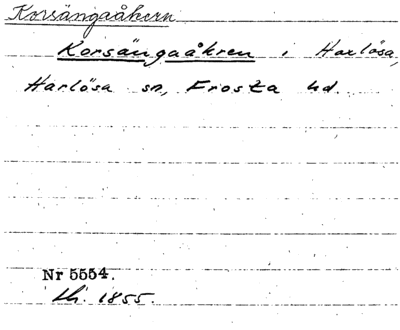 Korsängaåkern
Korsängaåkren i Harlösa,
Harlösa sn, Frosta hd.
Nr 5554.
1855.